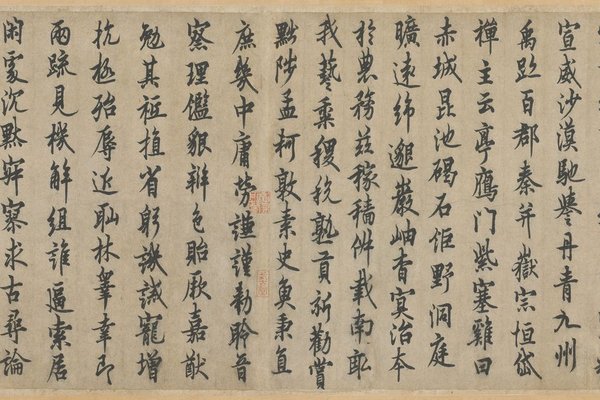 宣威沙漠馳譽丹青九州
禹跡百郡秦并嶽宗恒岱
禪主云亭鴈門紫塞雞田
赤城昆池碣石鉅野洞庭
曠遠綿邈巖岫杳冥治本
於農務茲稼穡俶載南畝
我藝黍稷稅熟貢新勸賞
黜陟孟軻敦素史魚秉直
庶幾中庸勞謙謹勅聆音
察理鑑貌辨色貽厥嘉猷
勉其祗植省躬譏誡寵增
抗極殆辱近恥林睾幸即
兩疏見機解組誰逼索居
閑處沉默寂寥求古尋論